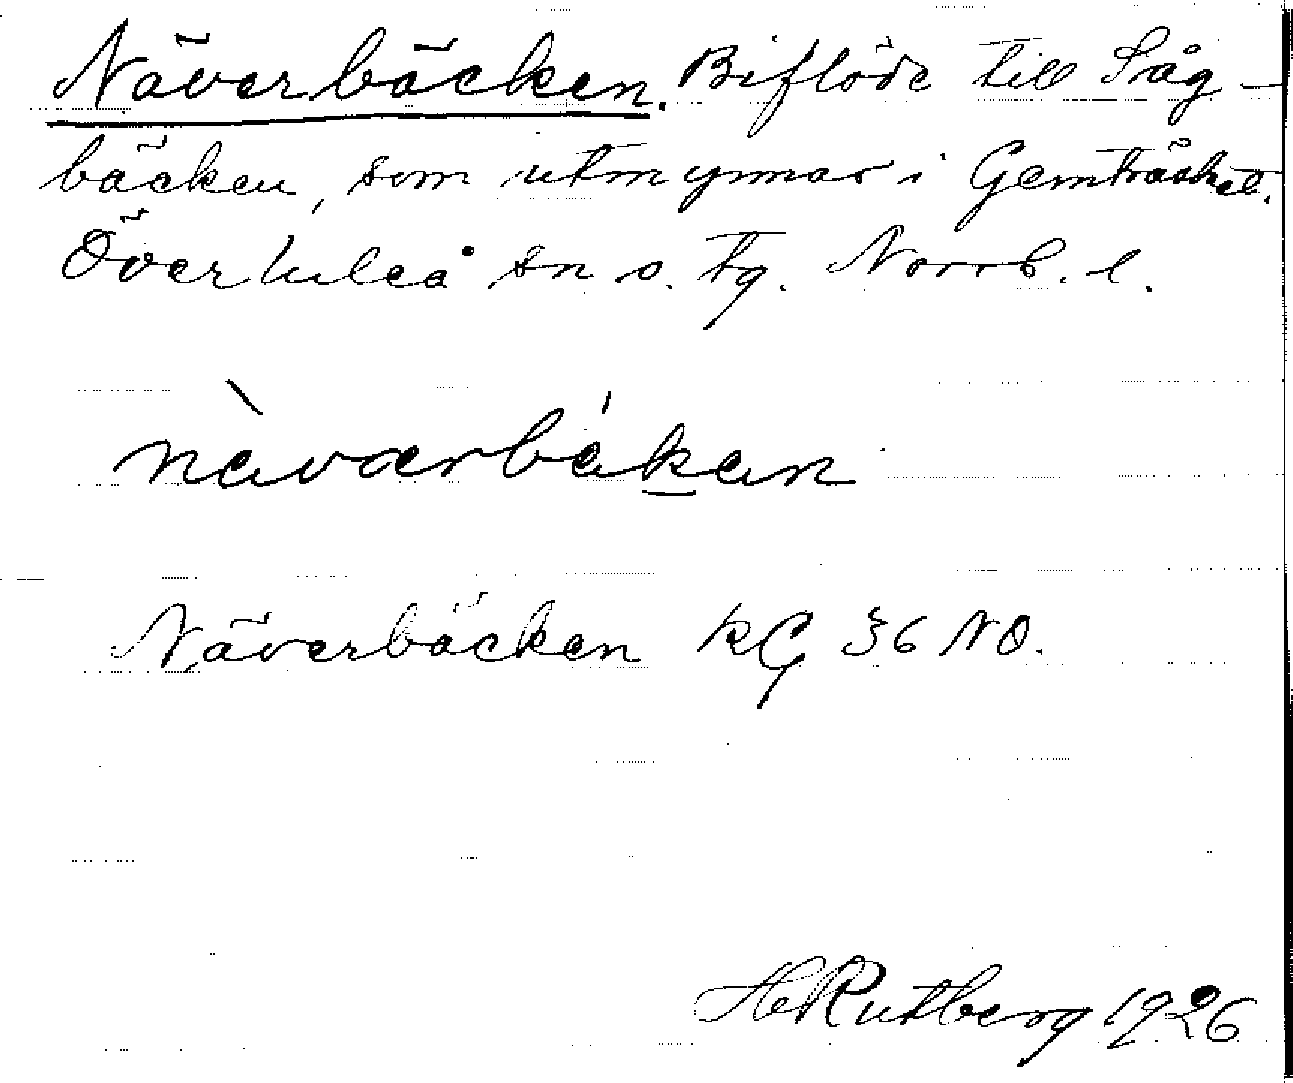 Näverbäcken. Biflöde till Såg-
bäcken, som utmynnar i Gemträsket.
Överluleå sn o. tg. Norrb. l.
nàværbákan
Näverbäcken KG 36 NO.
HRutberg 1926